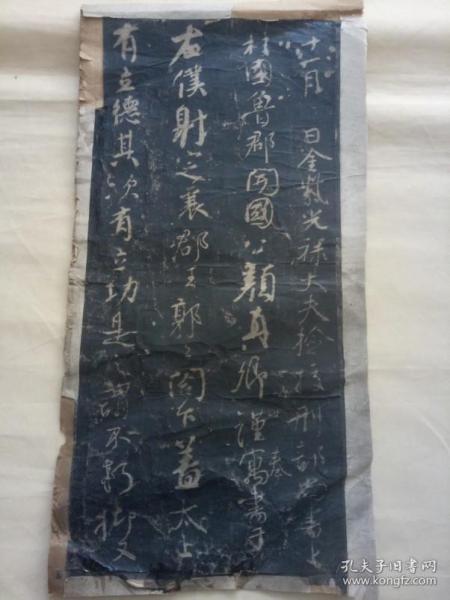 十一月 日金紫光祿大夫檢校刑部尚書上
柱國魯郡開國公顏真卿謹奉寓書于
右僕射定襄郡王郭公閣下蓋太上
有立德其次有立功是之謂不朽抑又
孔夫子旧书网
www.kongfz.com